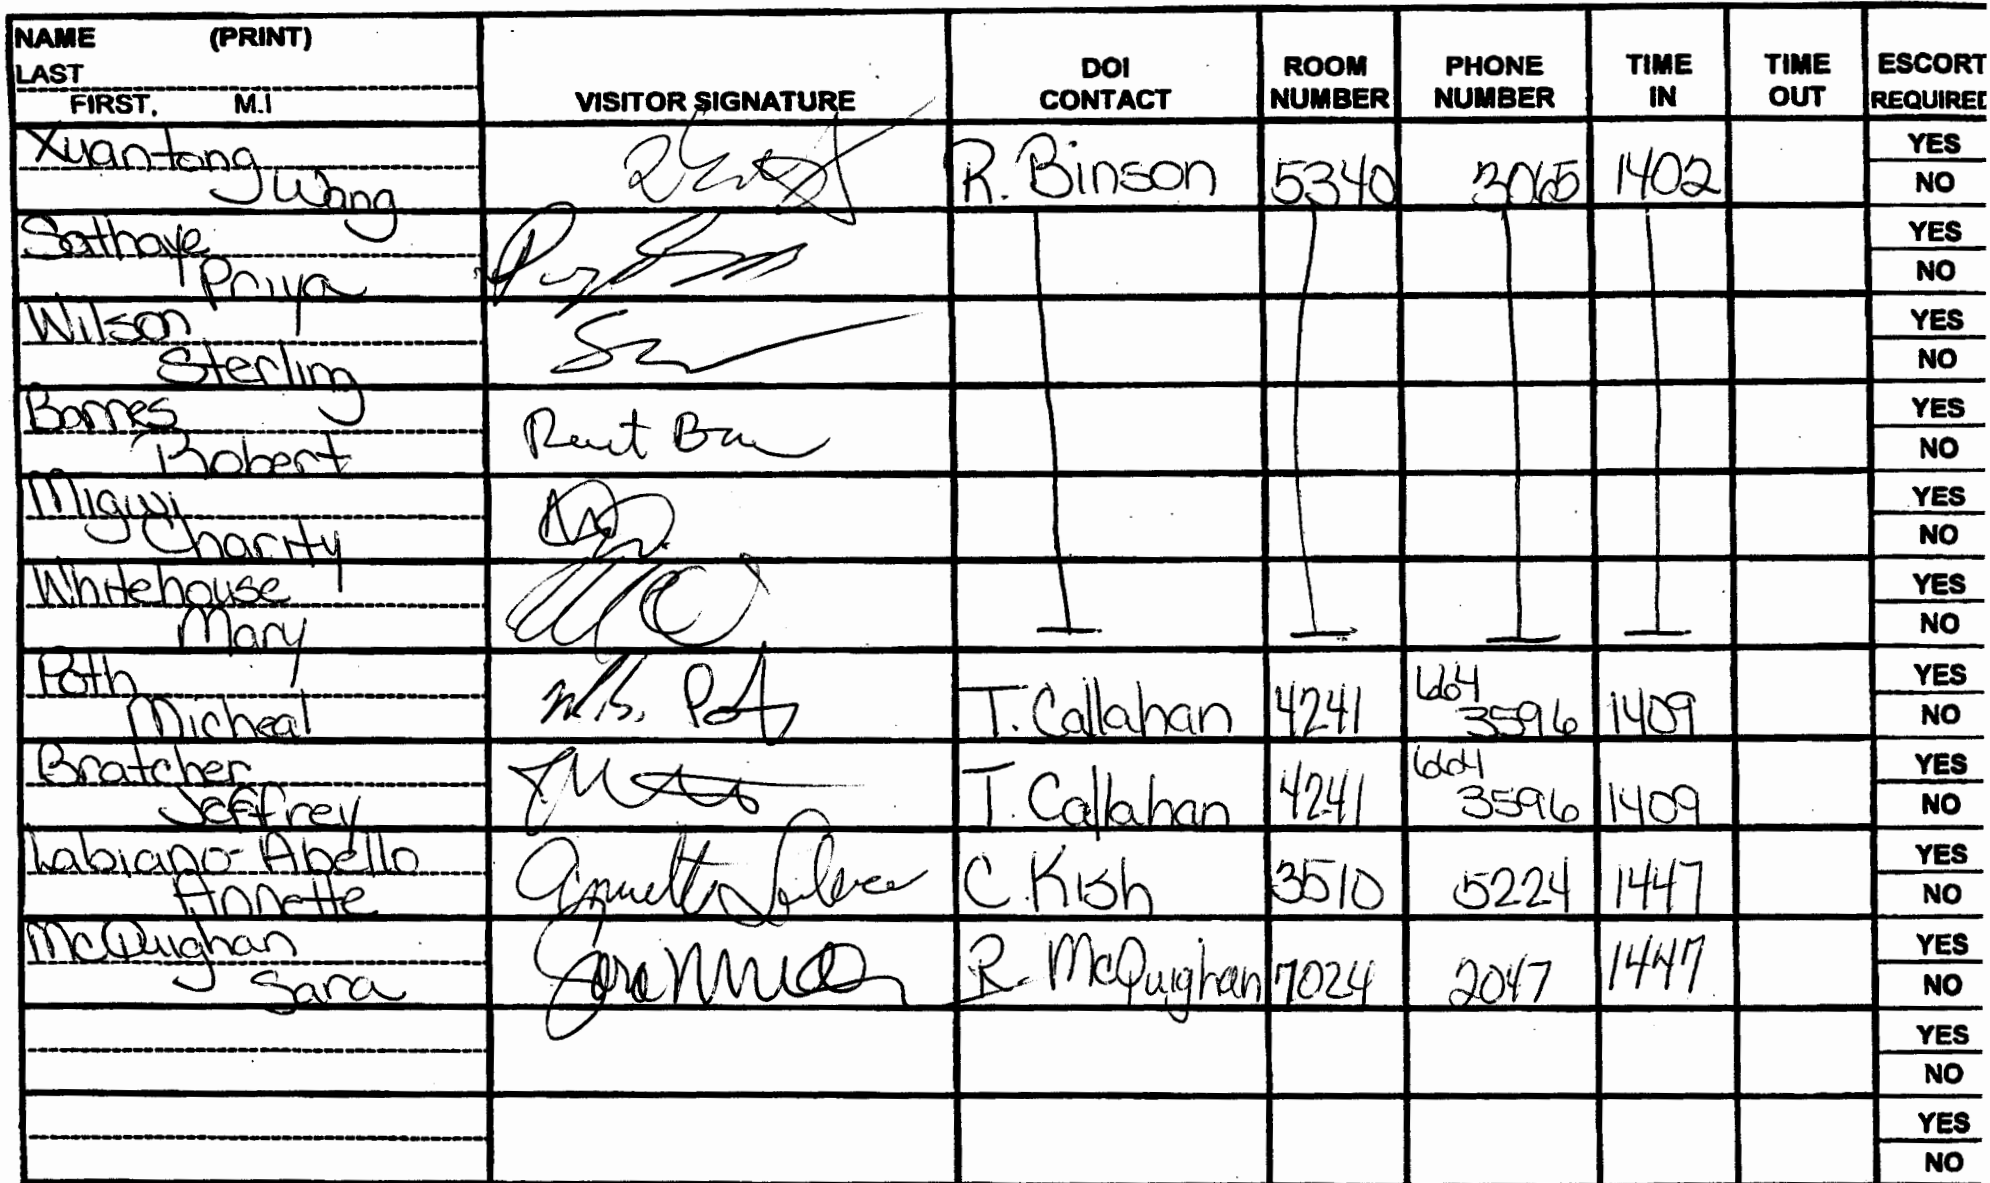 NAME (PRINT)
LAST
FIRST, M.I
VISITOR SIGNATURE
DOI CONTACT
ROOM NUMBER
PHONE NUMBER
TIME IN
TIME OUT
ESCORT REQUIRED
Xuantong
Wang
R. Binson 5340 3065 1402
YES
NO
Sathaye
Priya
YES
NO
Wilson
Sterling
YES
NO
Barnes
Robert
YES
NO
Migwi
Charity
YES
NO
Whitehouse
Mary
YES
NO
Poth
Micheal
T. Callahan 4241 664 3596 1409
YES
NO
Bratcher
Jeffrey
T. Callahan 4241 664 3596 1409
YES
NO
Labiano-Abello
Annette
C. Kish 3510 5224 1447
YES
NO
McQuighan
Sara
R. McQuighan 7024 2047 1447
YES
NO
YES
NO
YES
NO